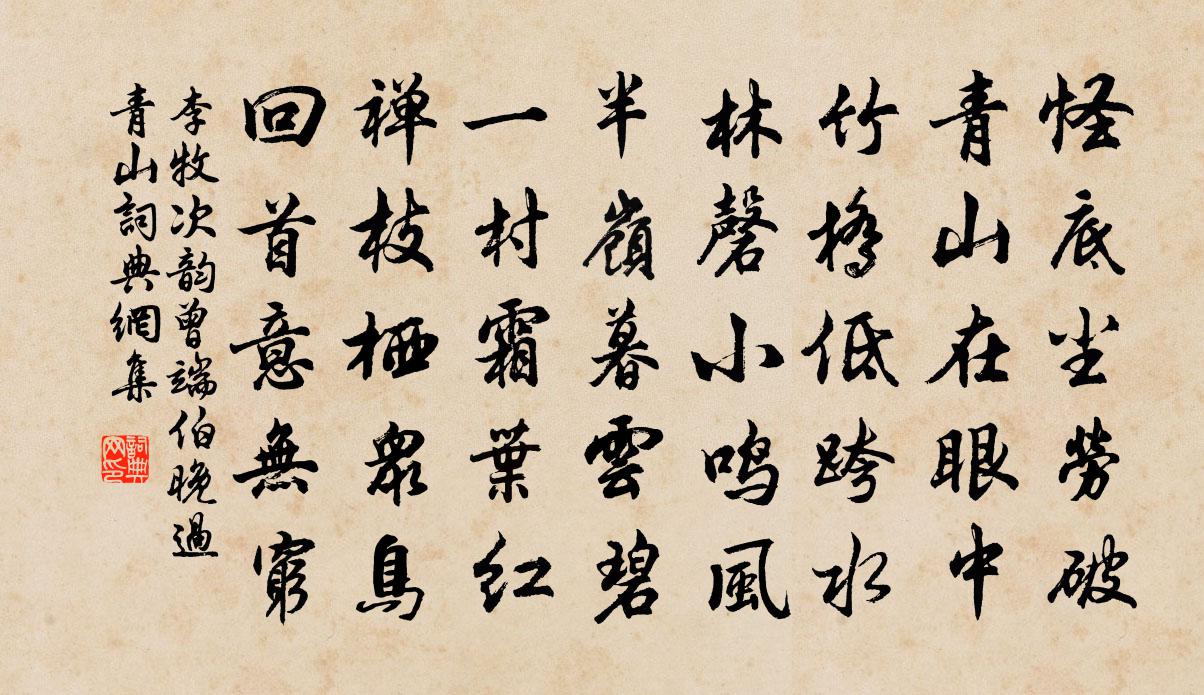 怪底尘勞破
青山在眼中
竹橋低跨水
林磬小鸣風
半嶺暮雲碧
一村霜葉红
禅枝栖眾鳥
回首意無窮
李牧次韵曾端伯晚過
青山詞典網集
詞典网印